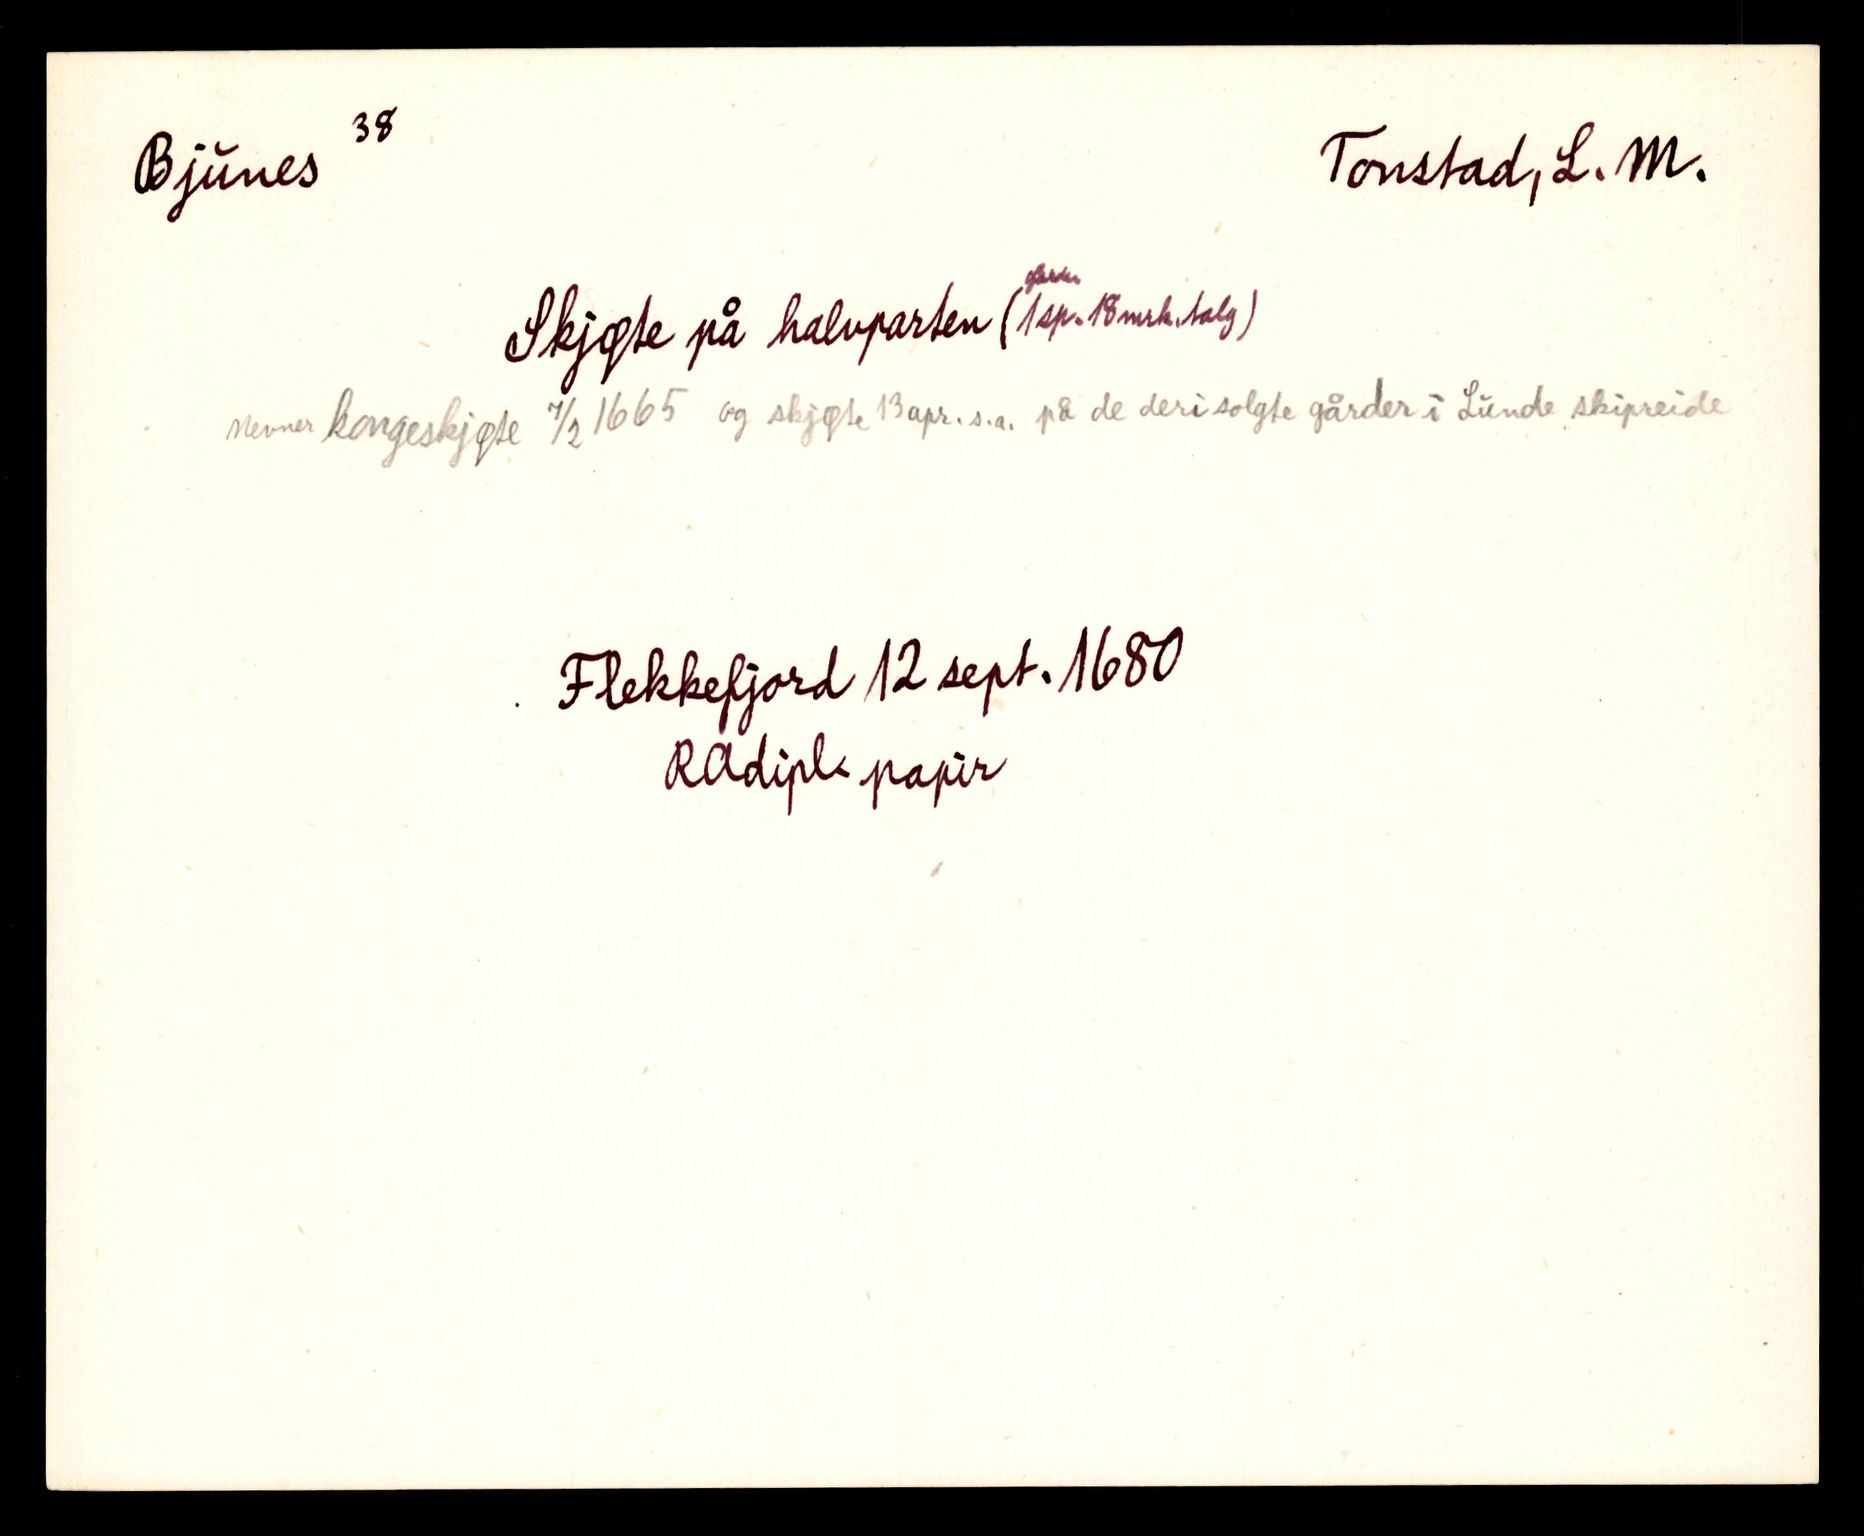 Bjunes 38
Tonstad, L. M.
gården
Skjøte på halvparten (1 sp. 18 mrk. talg)
Nevner kongeskjøte 7/2 1665 og skjøte 13 apr. s.a. på de deri solgte gårder i Lunde skipreide
Flekkefjord 12 sept. 1680
RAdipl. papir